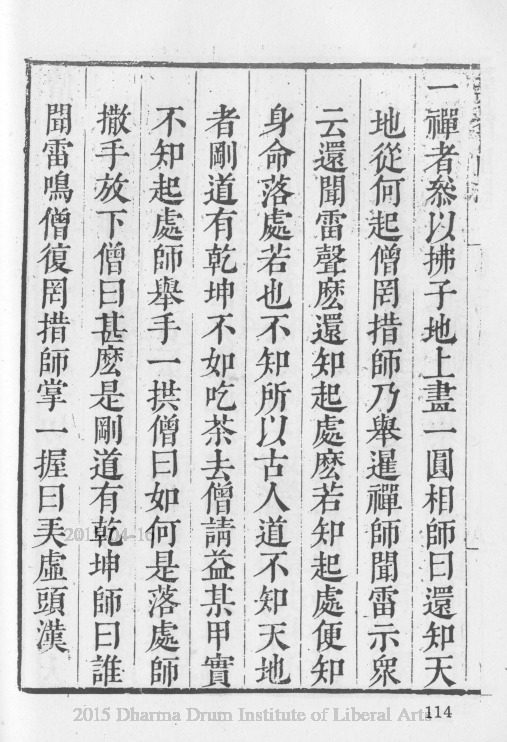 一禪者叅以拂子地上畫一圓相師曰還知天
地從何起僧罔措師乃舉暹禪師聞雷示眾
云還聞雷聲麽還知起處麽若知起處便知
身命落處若也不知所以古人道不知天地
者剛道有乾坤不如吃茶去僧請益某甲實
不知起處師舉手一拱僧曰如何是落處師
撒手放下僧曰甚麽是剛道有乾坤師曰誰
聞雷鳴僧復罔措師掌一握曰者虛頭漢
114
2015 Dharma Drum Institute of Liberal Arts